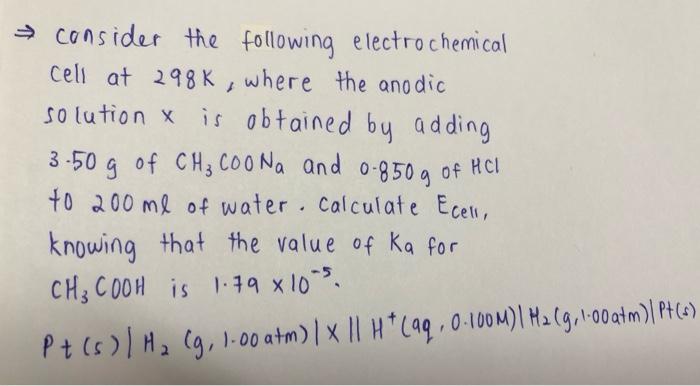 ⇒ consider the following electrochemical
cell at 298K, where the anodic
solution x is obtained by adding
3.50 g of CH₃COONa and 0.850 g of HCl
to 200 ml of water. Calculate Ecell,
knowing that the value of Ka for
CH₃COOH is 1.79 x 10⁻⁵.
Pt(s)| H₂ (g, 1.00 atm) | X || H⁺(aq, 0.100M)| H₂(g,1.00atm)| Pt(s)